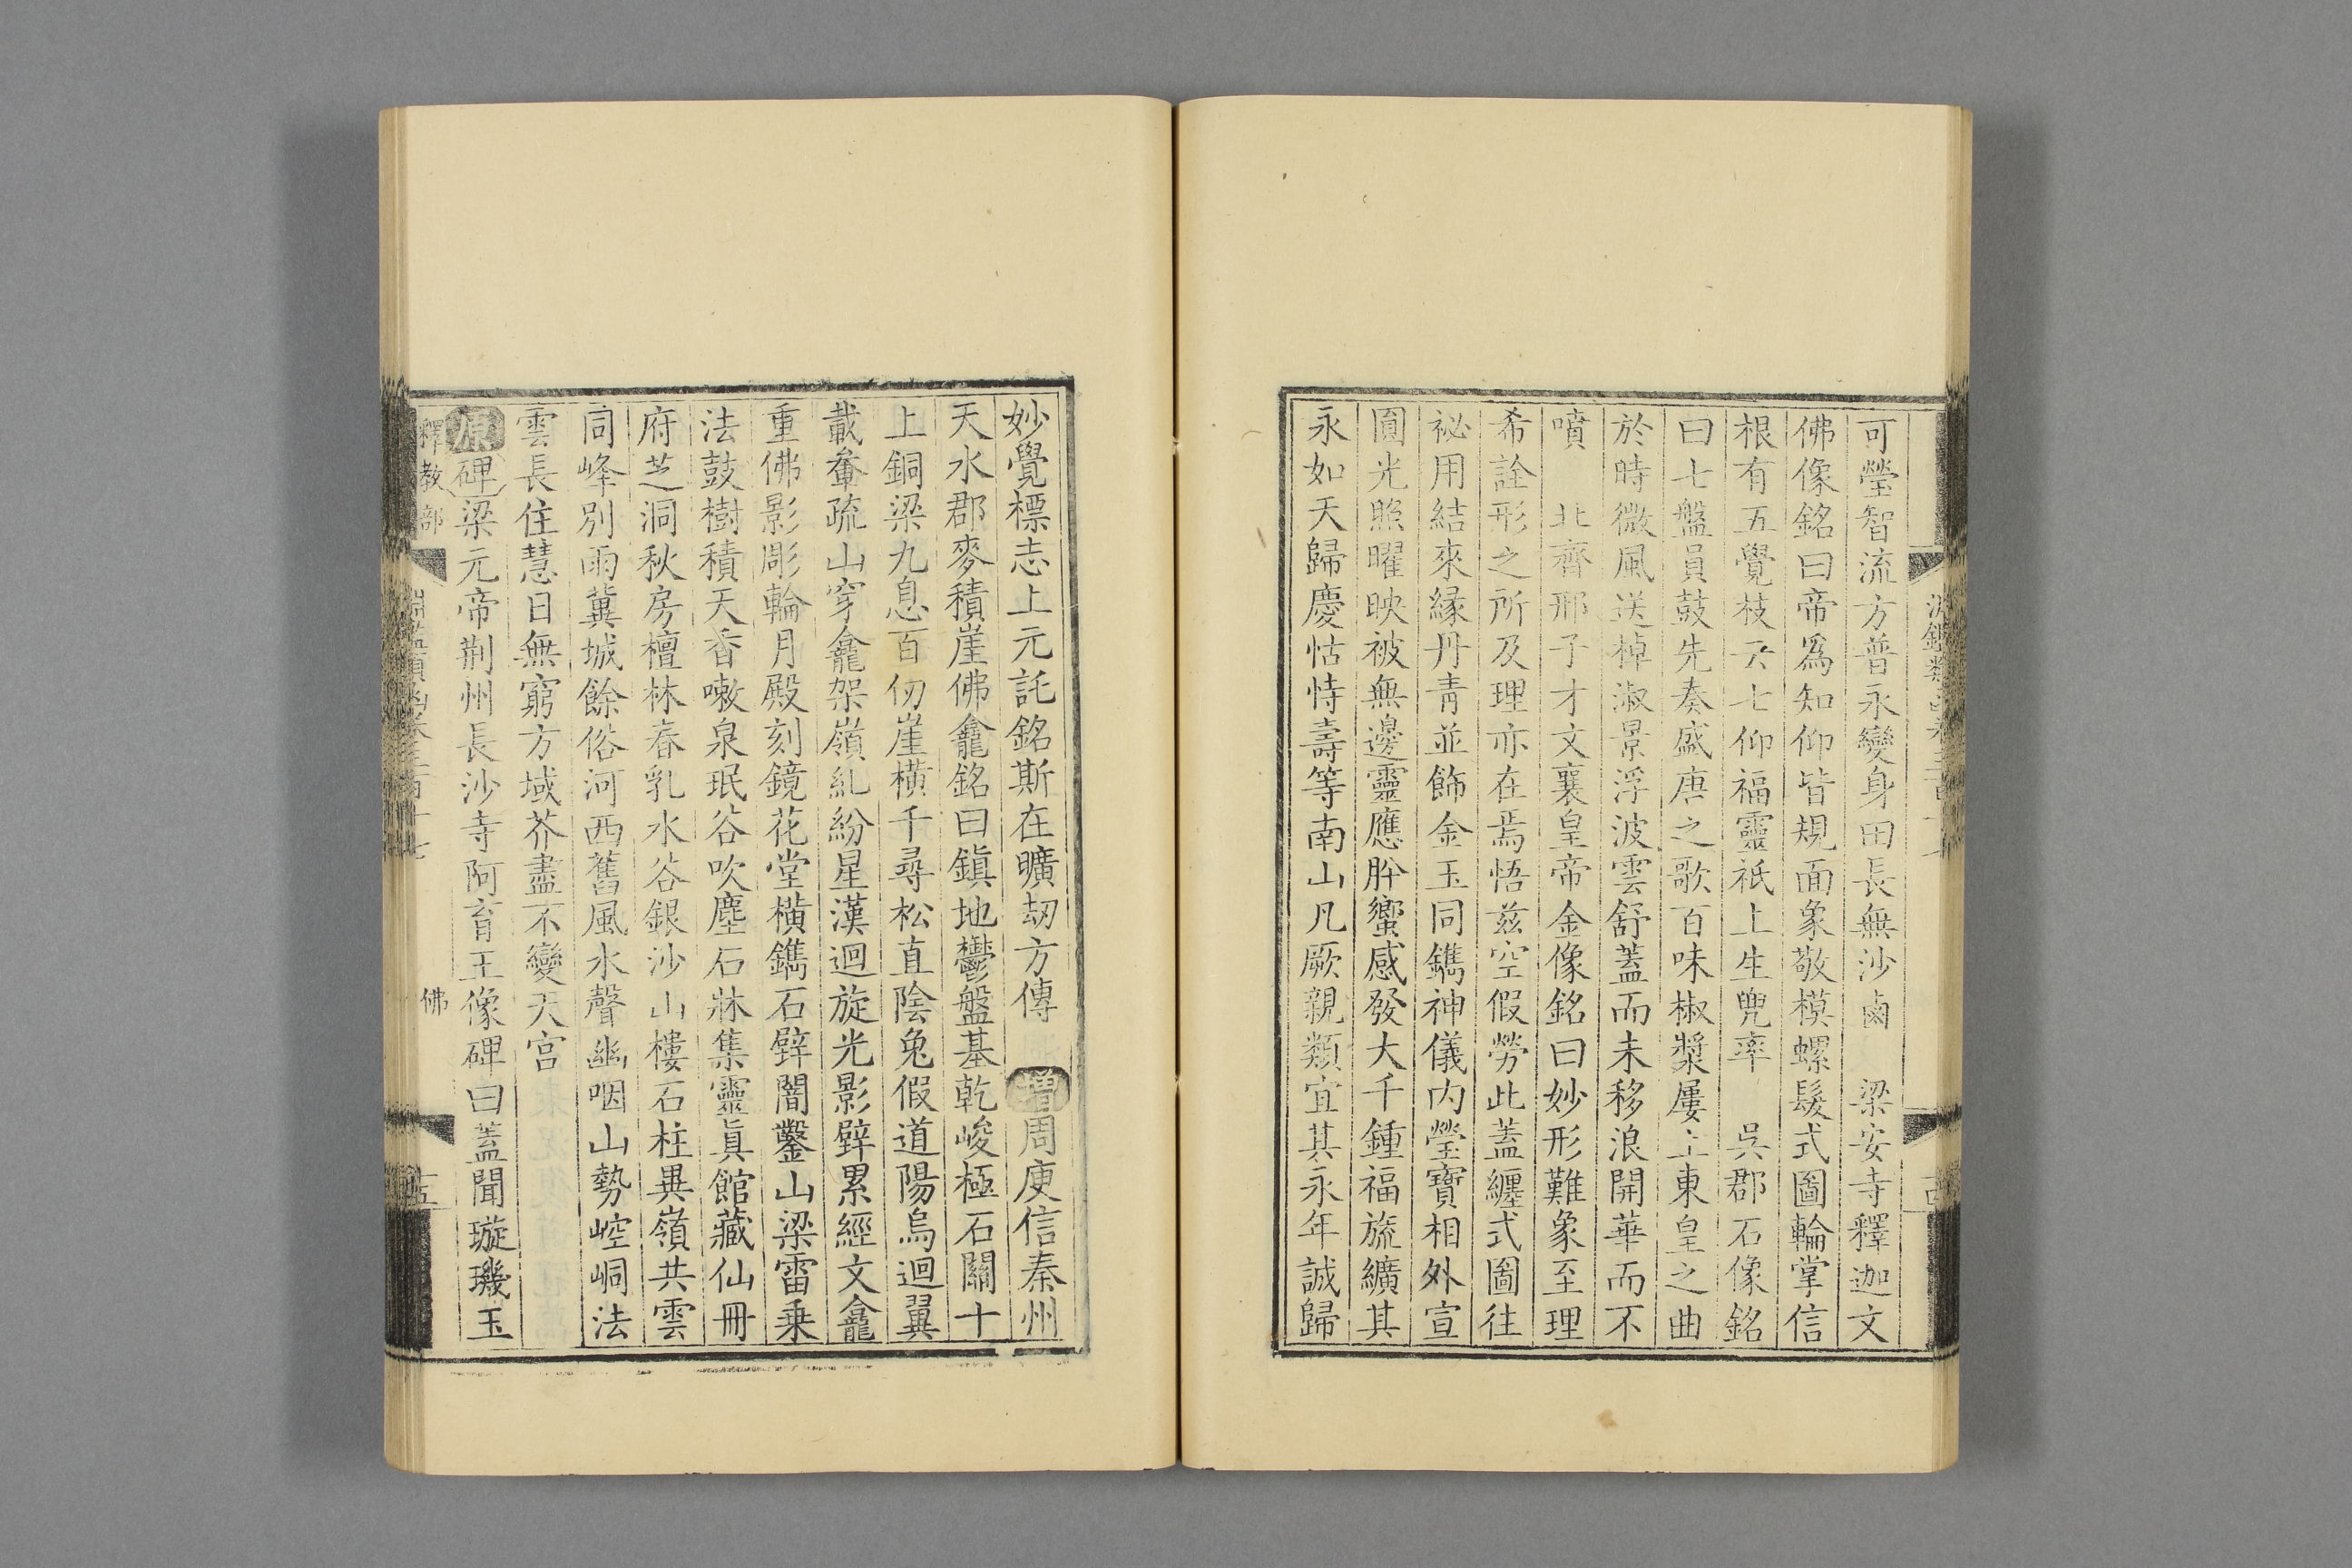 可瑩智流方普永變身田長無沙鹵　梁安寺釋迦文
佛像銘曰帝爲知仰皆規面象敬模螺髮式圖輪掌信
根有五覺枝云七仰福靈祇上生兜率　吳郡石像銘
曰七盤員鼓先奏盛唐之歌百味椒漿屢上東皇之曲
於時微風送棹淑景浮波雲舒蓋而未移浪開華而不
噴　北齊邢子才文襄皇帝金像銘曰妙形難象至理
希詮形之所及理亦在焉悟茲空假勞此蓋纏式圖往
祕用結來縁丹青並飾金玉同鐫神儀内瑩寶相外宣
圓光照曜映被無邊靈應肸蠁感發大千鍾福旒纊其
永如天歸慶怙恃壽等南山凡厥親類宜其永年誠歸
妙覺標志上元託銘斯在曠劫方傳　增周庾信秦州
天水郡麥積崖佛龕銘曰鎭地鬱盤基乾峻極石關十
上銅梁九息百仞崖橫千尋松直陰兔假道陽烏迴翼
載輂疏山穿龕架嶺糺紛星漢迴旋光影辟累經文龕
重佛影彫輪月殿刻鏡花堂橫鐫石壁闇鑿山梁雷乗
法鼓樹積天香嗽泉珉谷吹塵石牀集靈眞館藏仙冊
府芝洞秋房檀林春乳水谷銀沙山樓石柱異嶺共雲
同峰別雨冀城餘俗河西舊風水聲幽咽山勢崆峒法
雲長住慧日無窮方域芥盡不變天宮
原碑梁元帝荆州長沙寺阿育王像碑曰蓋聞璇璣玉
釋教部
佛